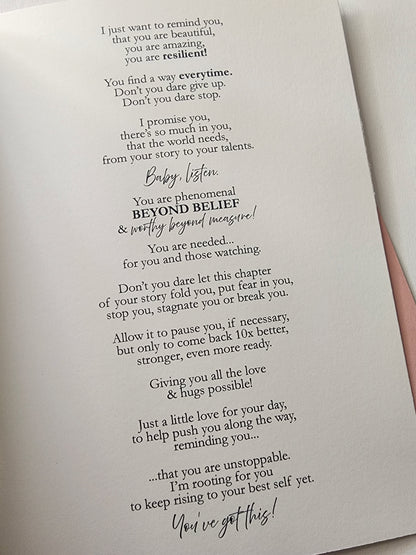 I just want to remind you,
that you are beautiful,
you are amazing,
you are resilient!
You find a way everytime.
Don't you dare give up.
Don't you dare stop.
I promise you,
there's so much in you,
that the world needs,
from your story to your talents.
Baby, listen.
You are phenomenal
BEYOND BELIEF
& worthy beyond measure!
You are needed...
for you and those watching.
Don't you dare let this chapter
of your story fold you, put fear in you,
stop you, stagnate you or break you.
Allow it to pause you, if necessary,
but only to come back 10x better,
stronger, even more ready.
Giving you all the love
& hugs possible!
Just a little love for your day,
to help push you along the way,
reminding you...
...that you are unstoppable.
I'm rooting for you
to keep rising to your best self yet.
You've got this!